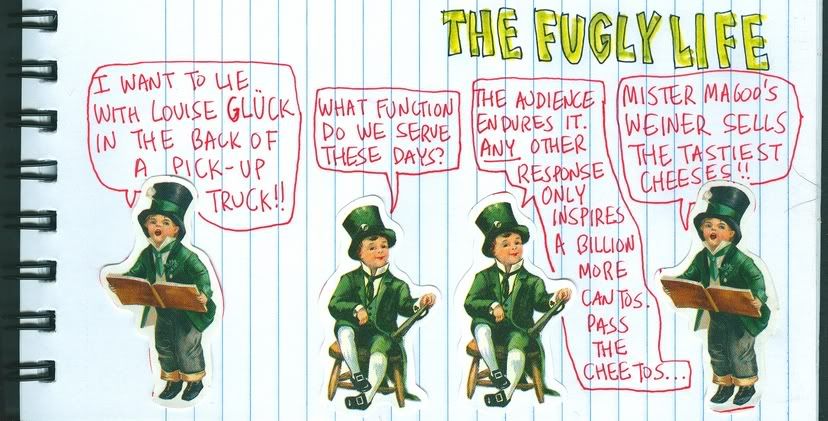 THE FUGLY LIFE
I WANT TO LIE
WITH LOUISE GLÜCK
IN THE BACK OF
A PICK-UP
TRUCK!!
WHAT FUNCTION
DO WE SERVE
THESE DAYS?
THE AUDIENCE
ENDURES IT.
ANY OTHER
RESPONSE
ONLY
INSPIRES
A BILLION
MORE
CANTOS.
PASS
THE
CHEETOS...
MISTER MAGOO'S
WEINER SELLS
THE TASTIEST
CHEESES!!